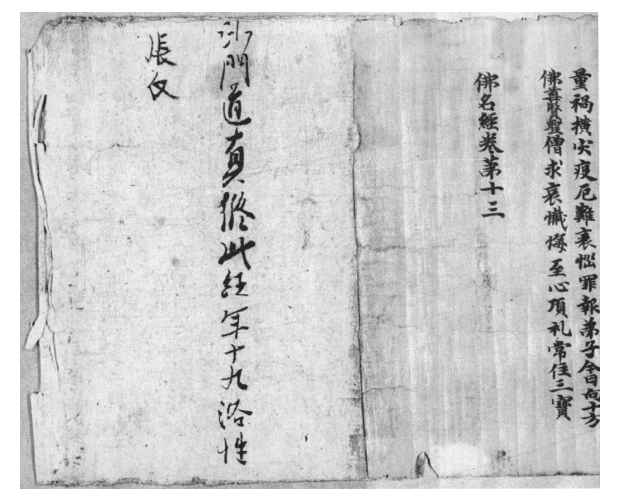 量禍橫灾疫厄難衰惱罪報弟子今日向十方
佛尊賢聖僧求哀懺悔至心頂礼常住三寶
佛名經卷第十三
沙門道真修此經年十九浴性
張